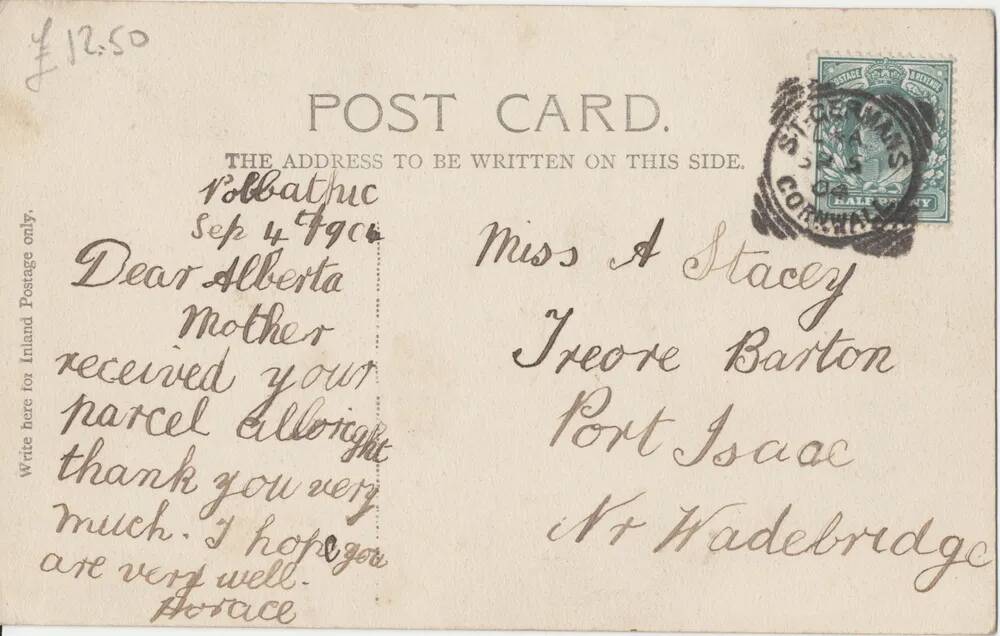 £12.50
POST CARD.
THE ADDRESS TO BE WRITTEN ON THIS SIDE.
Write here for Inland Postage only.
Polbathic
Sep 4th 1904
Dear Alberta
Mother
received your
parcel allright
thank you very
much. I hope you
are very well.
Horace
Miss A Stacey
Treore Barton
Port Isaac
Nr Wadebridge
POSTAGE & REVENUE
HALFPENNY
ST. GERMANS
SP 5
04
CORNWALL